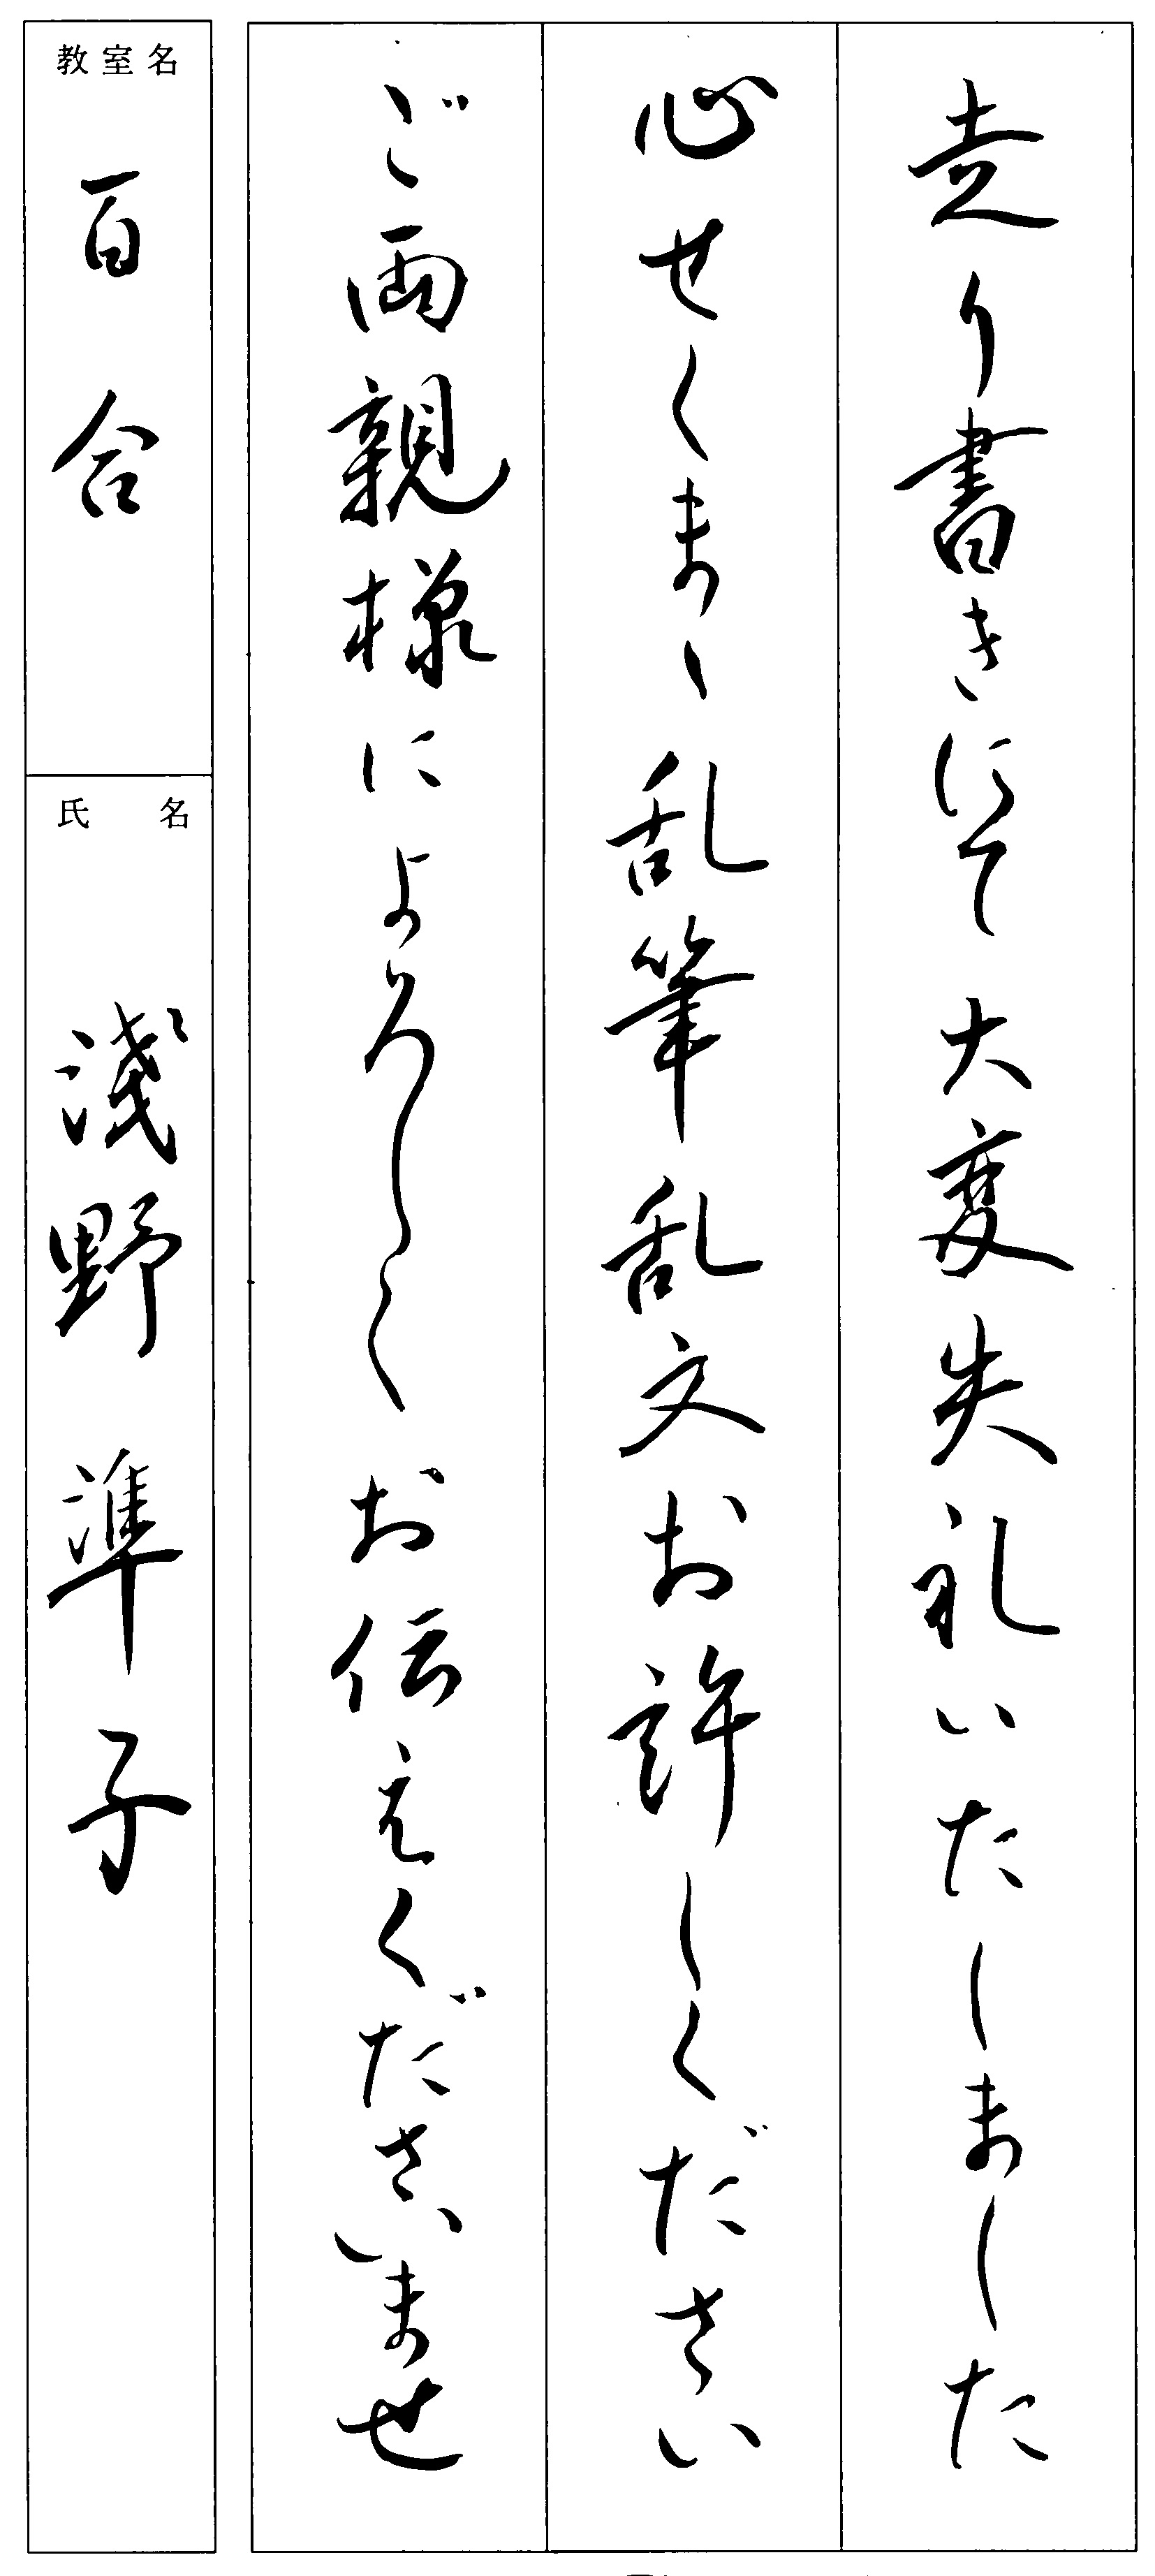 走り書きにて大変失礼いたしました
心せくまゝ乱筆乱文お許しください
ご両親様によろしくお伝えくださいませ
教室名
百合
氏名
浅野準子